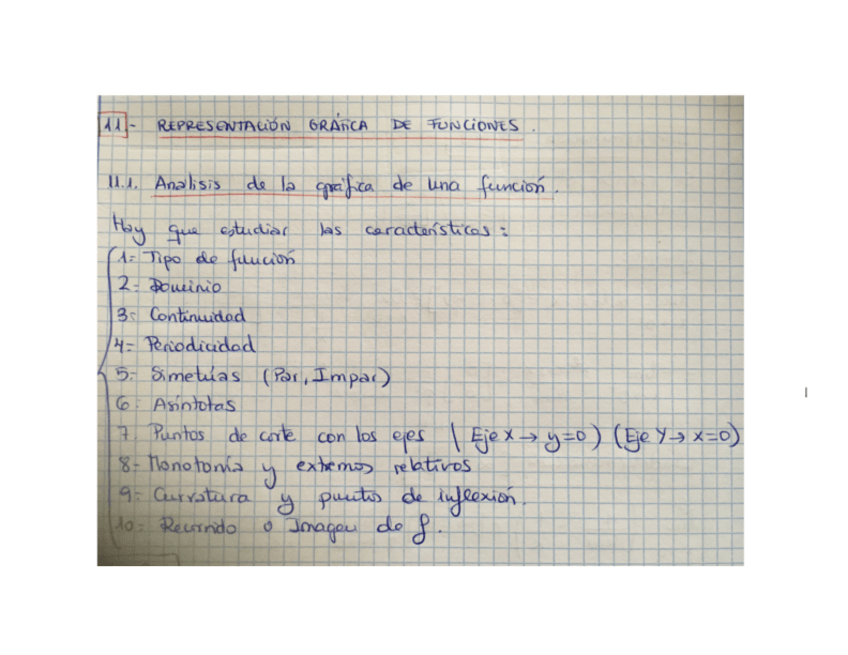 11.- REPRESENTACIÓN GRÁFICA DE FUNCIONES.
11.1. Analisis de la gráfica de una función.
Hay que estudiar las características:
1= Tipo de función
2= Dominio
3= Continuidad
4= Periodicidad
5= Simetrías (Par, Impar)
6= Asíntotas
7. Puntos de corte con los ejes ( Eje X → y=0 ) (Eje Y → x=0)
8- Monotonía y extremos relativos
9= Curvatura y puntos de inflexión.
10= Recorrido o Imagen de f.